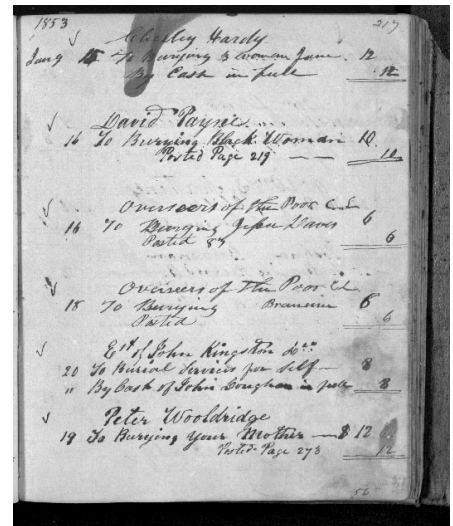 1853 217
Hardy
Jany 15 To Burying woman Jane. 12
By Cash in full 12
David Payne
16 To Burying Black Woman 10
Posted Page 219 10
Overseers of the Poor
16 To Burying Davis 6
Posted 6
Overseers of the Poor
18 To Burying 6
Posted 6
Est of John Kingston
20 To Burial Services for Self 8
" By Cash of John in full 8
Peter Wooldridge
19 To Burying Your Mother $ 12
Posted Page 273 12